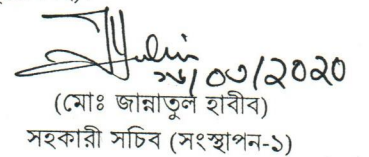 /০৩/২০২০
(মোঃ জান্নাতুল হাবীব)
সহকারী সচিব (সংস্থাপন-১)